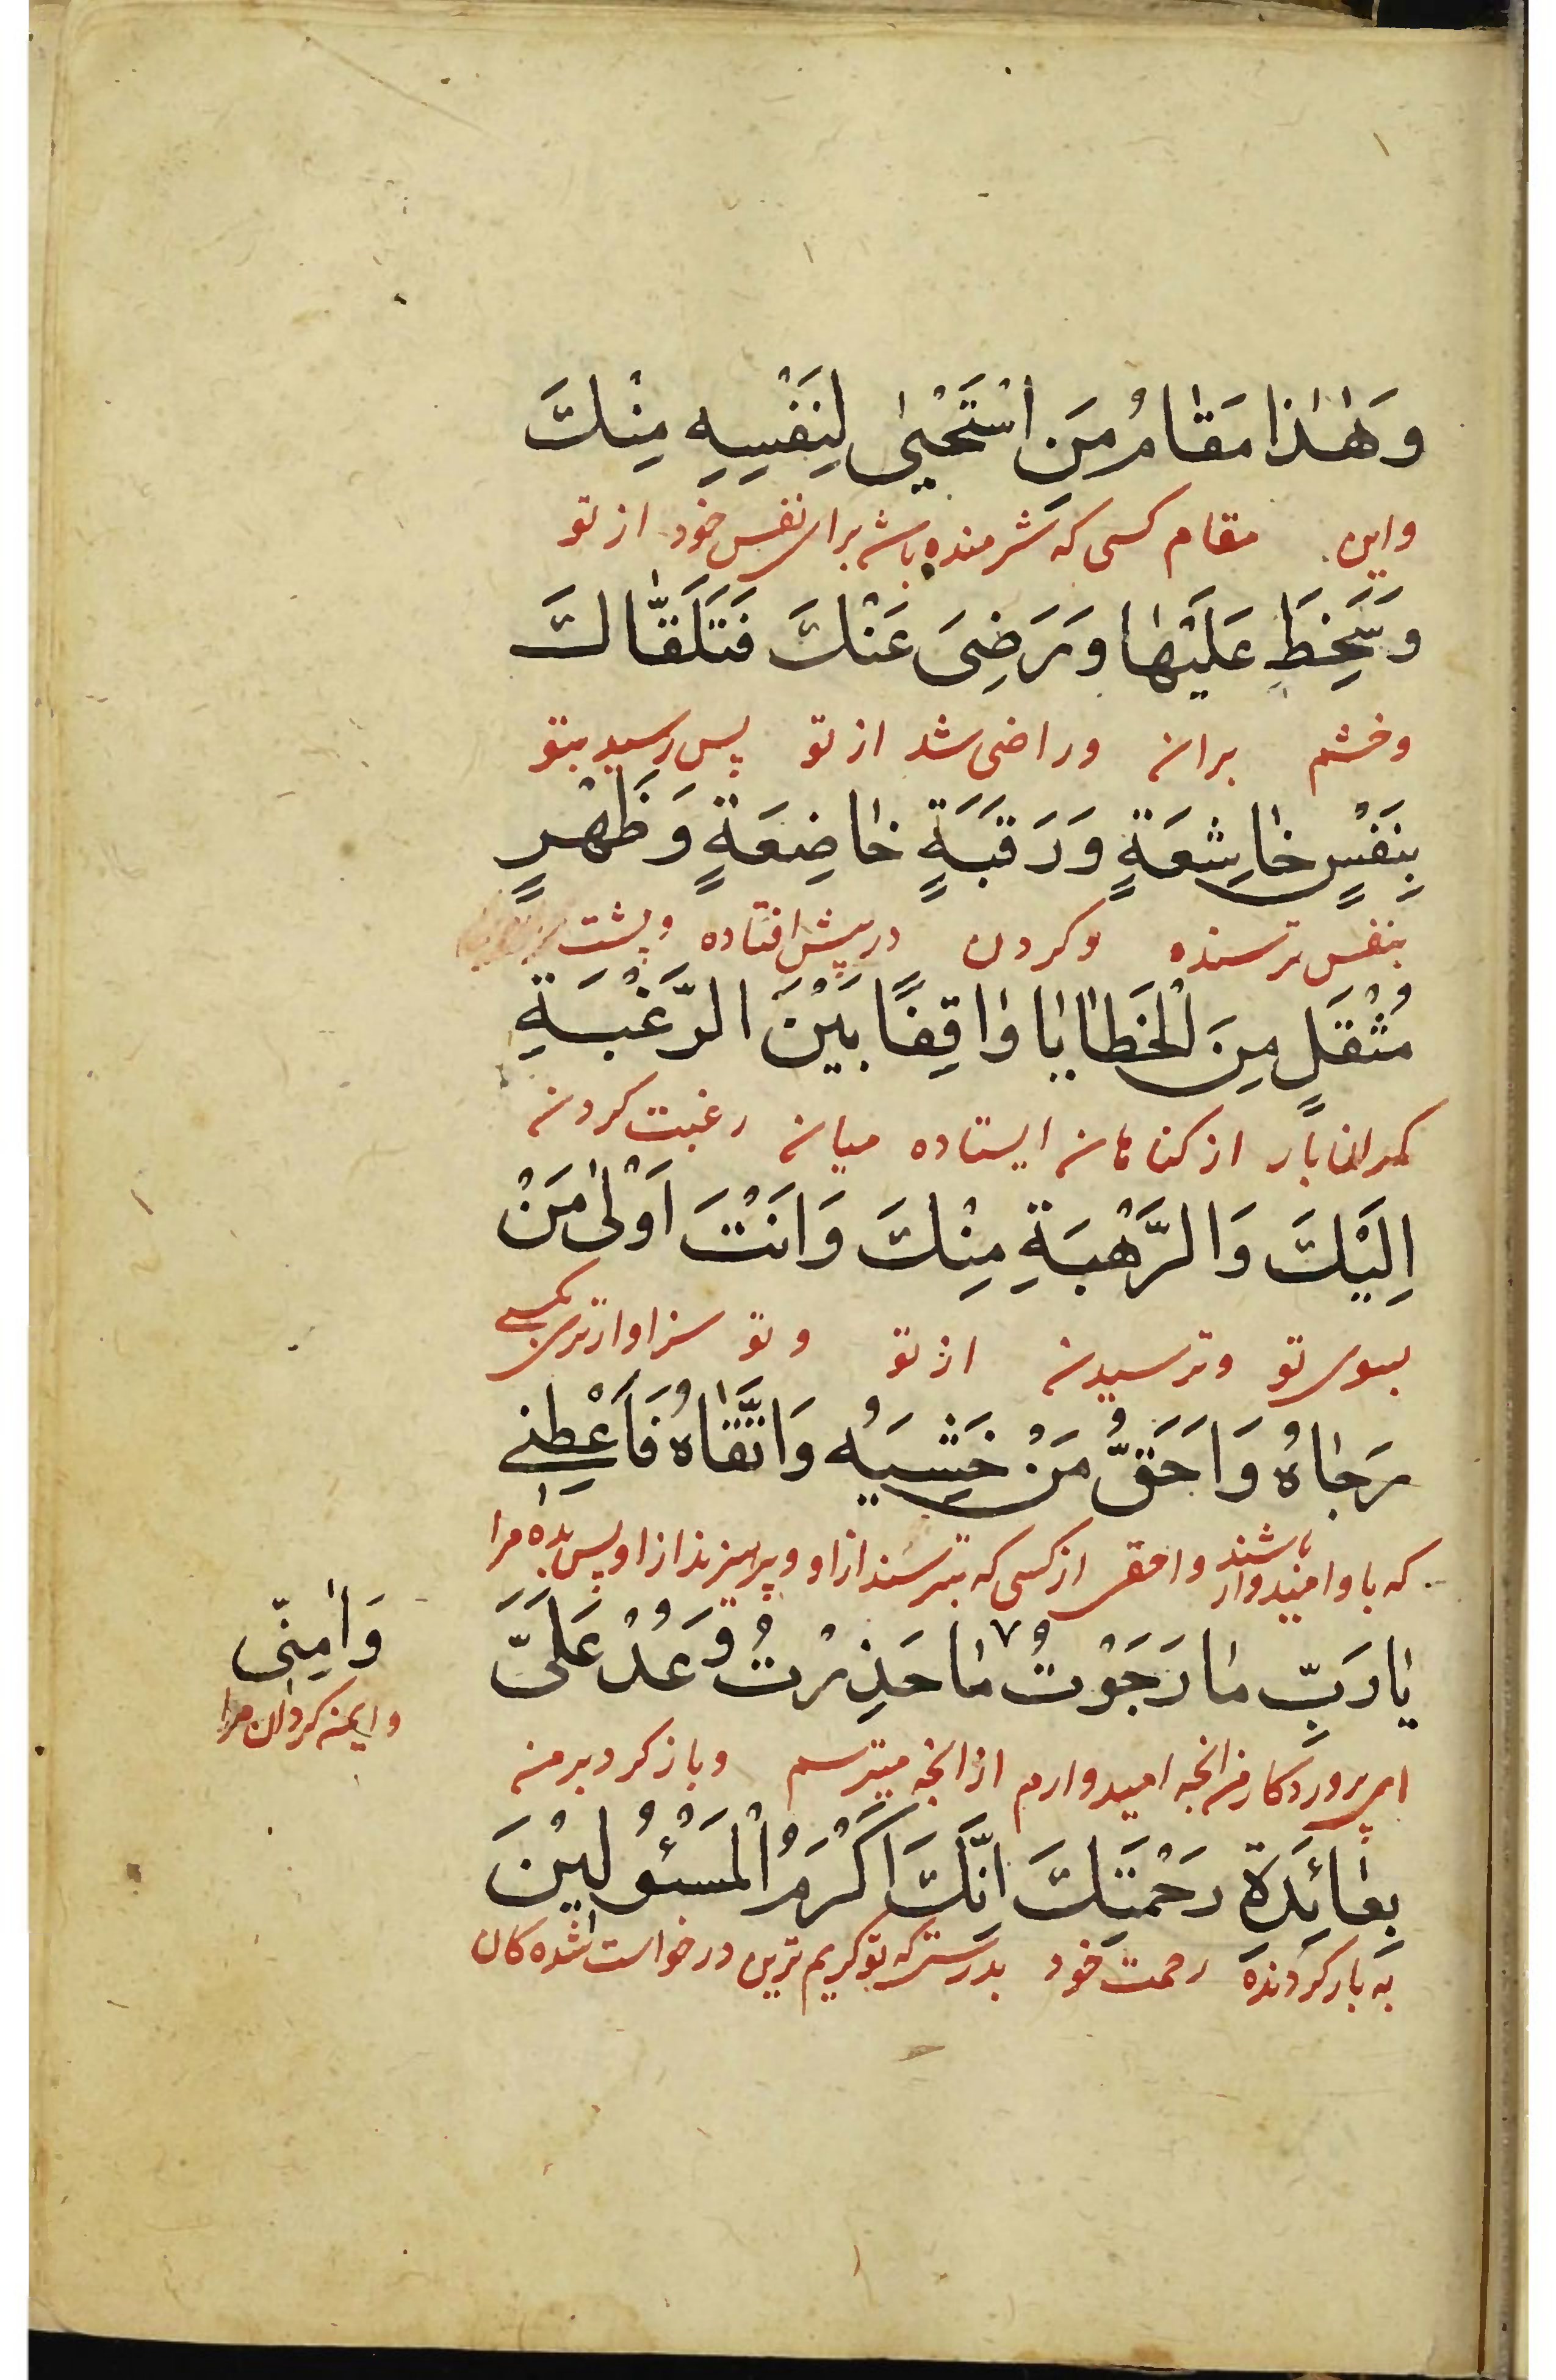 وَهٰذا مَقامُ مَنِ اسْتَحْيىٰ لِنَفْسِهِ مِنْكَ
واین مقام کسی که شرمنده باشد برای نفس خود از تو
وَسَخِطَ عَلَيْهٰا وَرَضِيَ عَنْكَ فَتَلَقّٰاكَ
وخشم بران وراضی شد از تو پس رسید بتو
بِنَفْسٍ خٰاشِعَةٍ وَرَقَبَةٍ خٰاضِعَةٍ وَظَهْرٍ
بنفس ترسنده وکردن در پیش افتاده وپشت
مُثْقَلٍ مِنَ الْخَطٰايٰا وٰاقِفًا بَيْنَ الرَّغْبَةِ
کران بار از کناهان ایستاده میان رغبت کردن
اِلَيْكَ وَالرَّهْبَةِ مِنْكَ وَاَنْتَ اَوْلىٰ مَنْ
بسوی تو وترسیدن از تو و تو سزاوارتری بکسی
رَجٰاهُ وَاَحَقُّ مَنْ خَشِيَهُ وَاتَّقٰاهُ فَاَعْطِنِي
که باو امیدوار باشند واحق از کسی که بترسند از او وپرهیزند از او پس بده مرا
يٰا رَبِّ مٰا رَجَوْتُ مٰا حَذِرْتُ وَعُدْ عَلَيَّ
وَاٰمِنّى
ای پروردکار من انچه امیدوارم از انچه میترسم وباز کرد بر من
وایمن کردان مرا
بِعٰائِدَةِ رَحْمَتِكَ اِنَّكَ اَكْرَمُ الْمَسْئُولِيْنَ
به باز کردنده رحمت خود بدرستی که تو کریم ترین درخواست شده کان